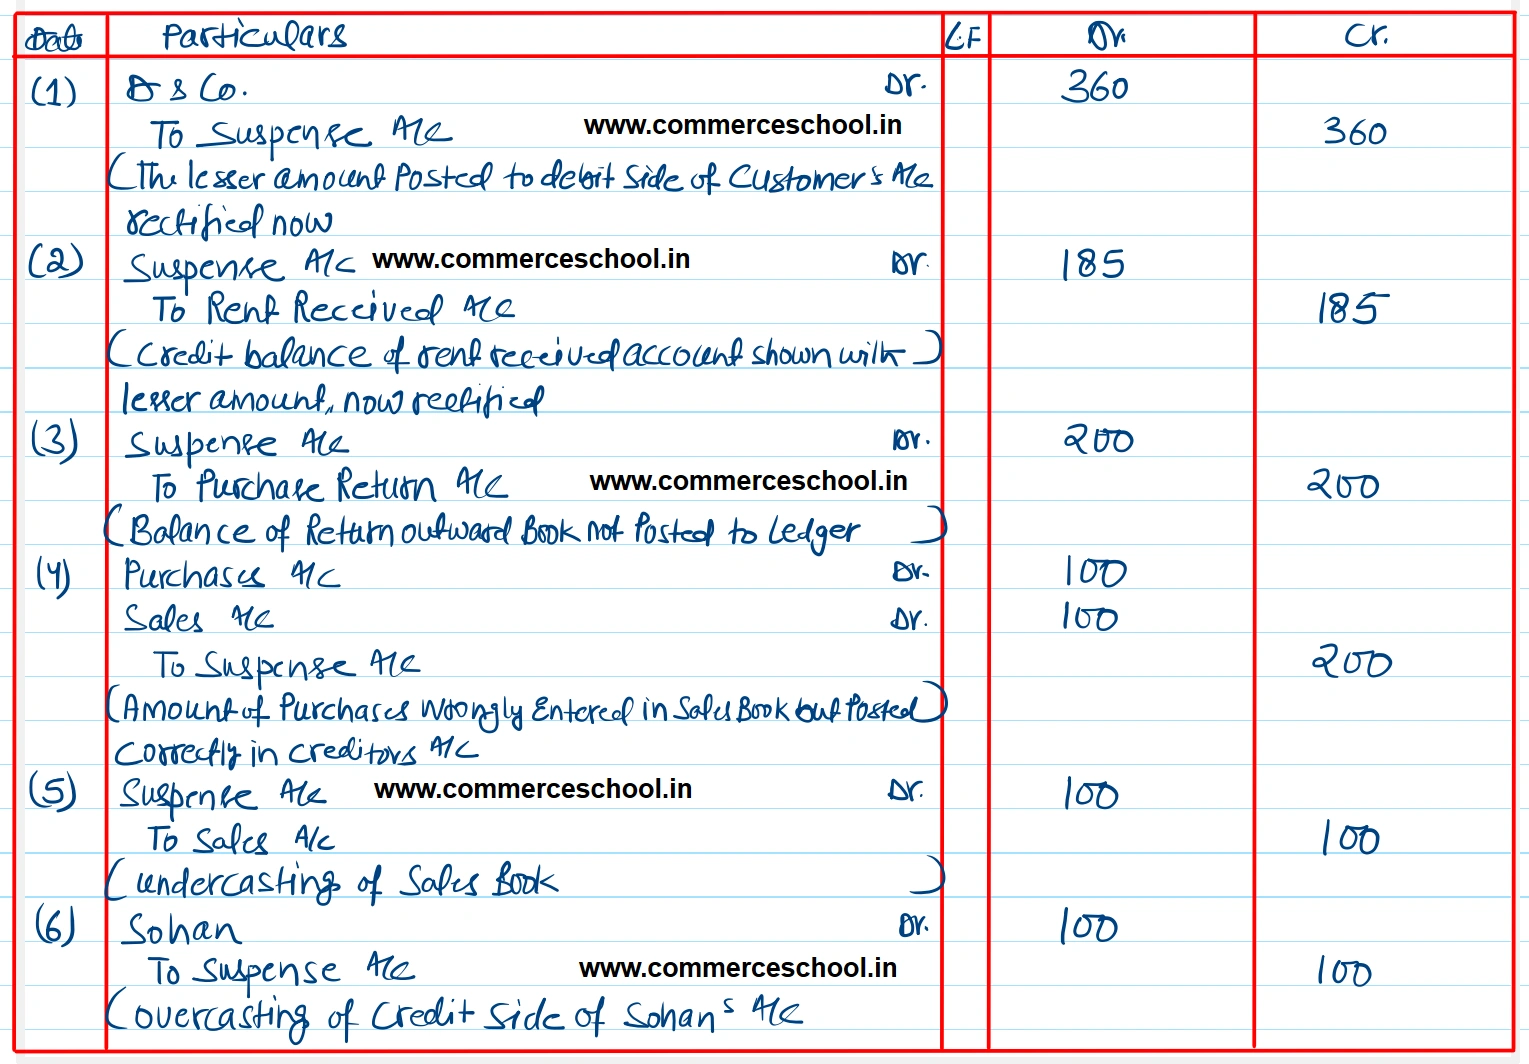 Date Particulars L.F Dr. Cr.
(1) D & Co. Dr. 360
To Suspense A/c www.commerceschool.in 360
(The lesser amount Posted to debit side of Customer's A/c
rectified now
(2) Suspense A/c www.commerceschool.in Dr. 185
To Rent Received A/c 185
(Credit balance of rent received account shown with)
lesser amount, now rectified
(3) Suspense A/c Dr. 200
To Purchase Return A/c www.commerceschool.in 200
(Balance of Return outward Book not Posted to Ledger)
(4) Purchases A/c Dr. 100
Sales A/c Dr. 100
To Suspense A/c 200
(Amount of Purchases Wrongly Entered in Sales Book but Posted)
Correctly in creditors A/c
(5) Suspense A/c www.commerceschool.in Dr. 100
To Sales A/c 100
(undercasting of Sales Book)
(6) Sohan Dr. 100
To Suspense A/c www.commerceschool.in 100
(overcasting of Credit Side of Sohan's A/c